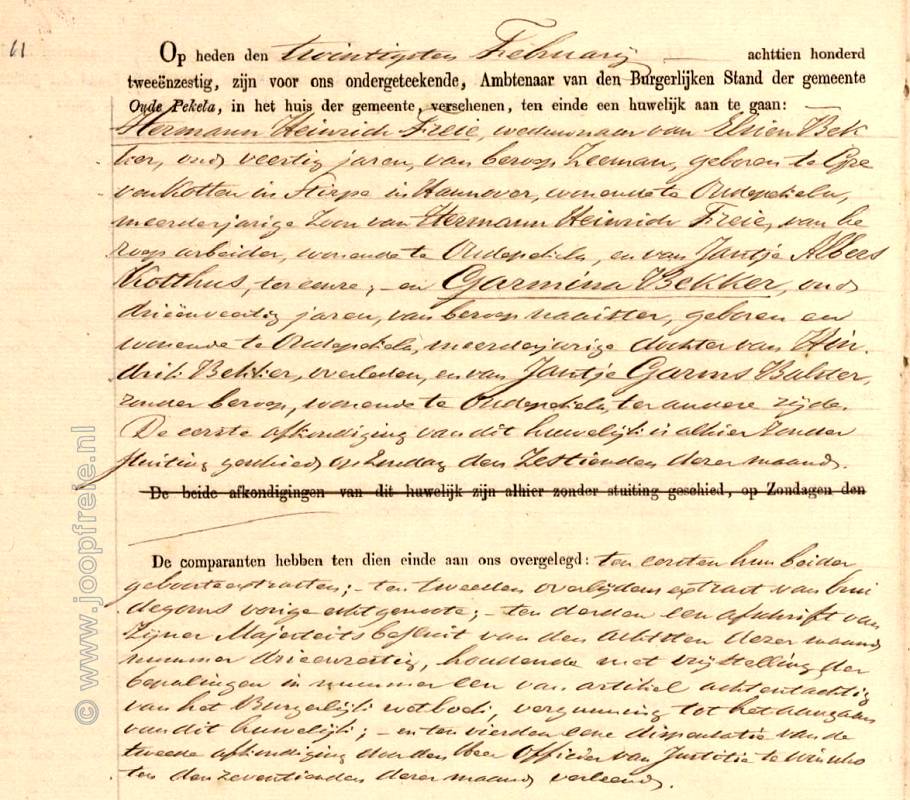 61
Op heden den twintigsten Februarij achttien honderd
tweeënzestig, zijn voor ons ondergeteekende, Ambtenaar van den Burgerlijken Stand der gemeente
Oude Pekela, in het huis der gemeente, verschenen, ten einde een huwelijk aan te gaan:
Hermann Heinrich Freie, weduwnaar van Elsien Bek
ker, oud veertig jaren, van beroep Zeeman, geboren te
in Stirpe in Hannover, wonende te Oudepekela,
meerderjarige Zoon van Hermann Heinrich Freie, van be
roep arbeider, wonende te Oudepekela, en van Jantje Albers
Kotthus, ter eenre; - en Garmina Bekker, oud
drieënveertig jaren, van beroep naaister, geboren en
wonende te Oudepekela, meerderjarige dochter van Hin
drik Bekker, overleden, en van Jantje Garms Bulder,
zonder beroep, wonende te Oudepekela, ter andere zijde.
De eerste afkondiging van dit huwelijk is alhier zonder
stuiting geschied op Zondag den Zestienden dezer maand.
De beide afkondigingen van dit huwelijk zijn alhier zonder stuiting geschied, op Zondagen den
De comparanten hebben ten dien einde aan ons overgelegd: ten eersten hun beider
geboorteextracten; - ten tweeden overlijdens extract van brui
degoms vorige echtgenoote; - ten derden een afschrift van
Zijner Majesteits besluit van den achtsten dezer maand
nummer drieenzestig, houdende met vrijstelling der
bepalingen in nummer een van artikel achtentachtig
van het Burgerlijk wetboek, vergunning tot het aangaan
van dit huwelijk; - en ten vierden eene dispensatie van de
tweede afkondiging door den Heer Officier van Justitie te Winscho
ten den zeventienden dezer maand verleend.
© www.joopfreie.nl